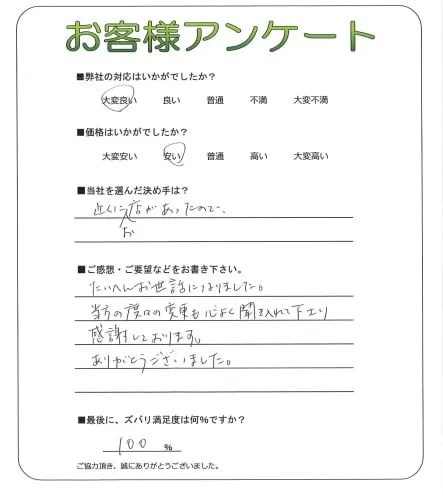 お客様アンケート
■弊社の対応はいかがでしたか？
大変良い　良い　普通　不満　大変不満
■価格はいかがでしたか？
大変安い　安い　普通　高い　大変高い
■当社を選んだ決め手は？
近くに店があったので、
お
■ご感想・ご要望などをお書き下さい。
たいへんお世話になりました。
当方の度々の変更も心よく聞き入れて下さり
感謝しております。
ありがとうございました。
■最後に、ズバリ満足度は何％ですか？
100 %
ご協力頂き、誠にありがとうございました。